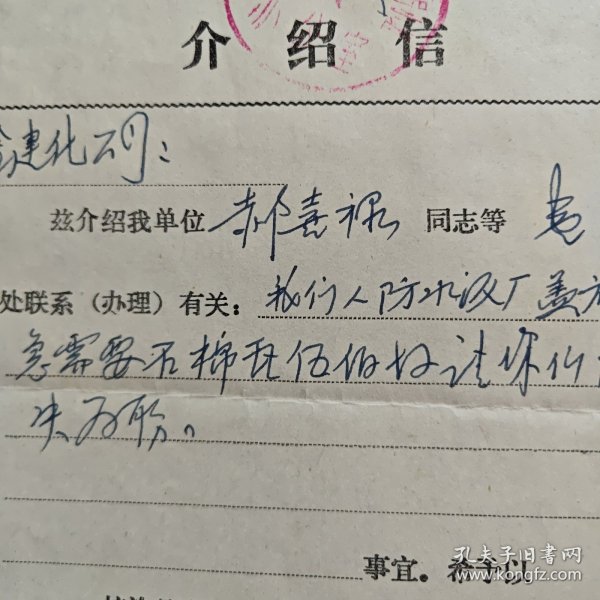 介绍信
建化公司：
兹介绍我单位 郝喜禄 同志等
处联系（办理）有关：我们人防水汉厂盖
急需要石棉瓦伍佰块请你们
决为盼。
事宜。希予以
孔夫子旧书网
www.kongfz.com